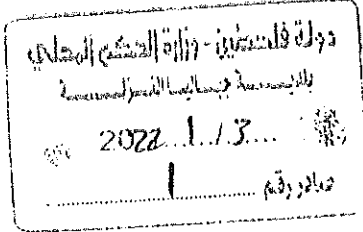 دولة فلسطين - وزارة الحكم المحلي
بلديـــة جباليا النزلـــة
2022...1../.3....
صادر رقم ........1........